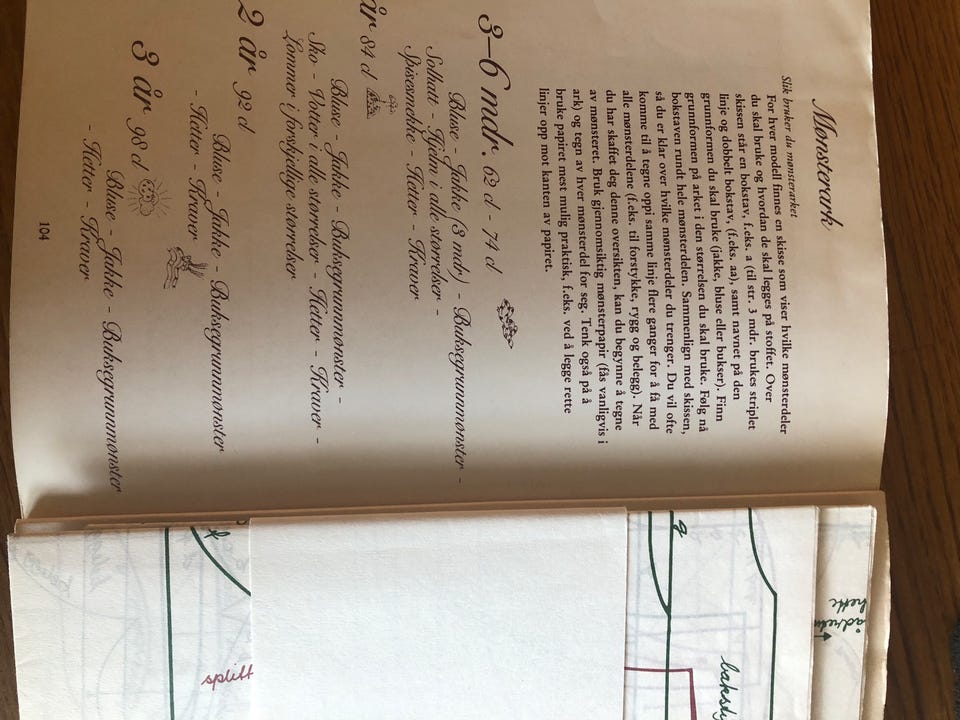 Mønsterark
Slik bruker du mønsterarket
For hver modell finnes en skisse som viser hvilke mønsterdeler
du skal bruke og hvordan de skal legges på stoffet. Over
skissen står en bokstav, f.eks. a (til str. 3 mdr. brukes striplet
linje og dobbelt bokstav, (f.eks. aa), samt navnet på den
grunnformen du skal bruke (jakke, bluse eller bukser). Finn
grunnformen på arket i den størrelsen du skal bruke. Følg nå
bokstaven rundt hele mønsterdelen. Sammenlign med skissen,
så du er klar over hvilke mønsterdeler du trenger. Du vil ofte
komme til å tegne oppi samme linje flere ganger for å få med
alle mønsterdelene (f.eks. til forstykke, rygg og belegg). Når
du har skaffet deg denne oversikten, kan du begynne å tegne
av mønsteret. Bruk gjennomsiktig mønsterpapir (fås vanligvis i
ark) og tegn av hver mønsterdel for seg. Tenk også på å
bruke papiret mest mulig praktisk, f.eks. ved å legge rette
linjer opp mot kanten av papiret.
3–6 mdr. 62 d - 74 d
Bluse - Jakke (3 mdr) - Buksegrunnmønster -
Solhatt - Kjøhn i alle størrelser -
Spisesmekke - Hetter - Kraver
år 84 d
Bluse - Jakke - Buksegrunnmønster -
Sko - Votter i alle størrelser - Hetter - Kraver -
Lommer i forskjellige størrelser
2 år 92 d
Bluse - Jakke - Buksegrunnmønster
- Hetter - Kraver
3 år 98 d
Bluse - Jakke - Buksegrunnmønster
- Hetter - Kraver
104
hette
g
splitt